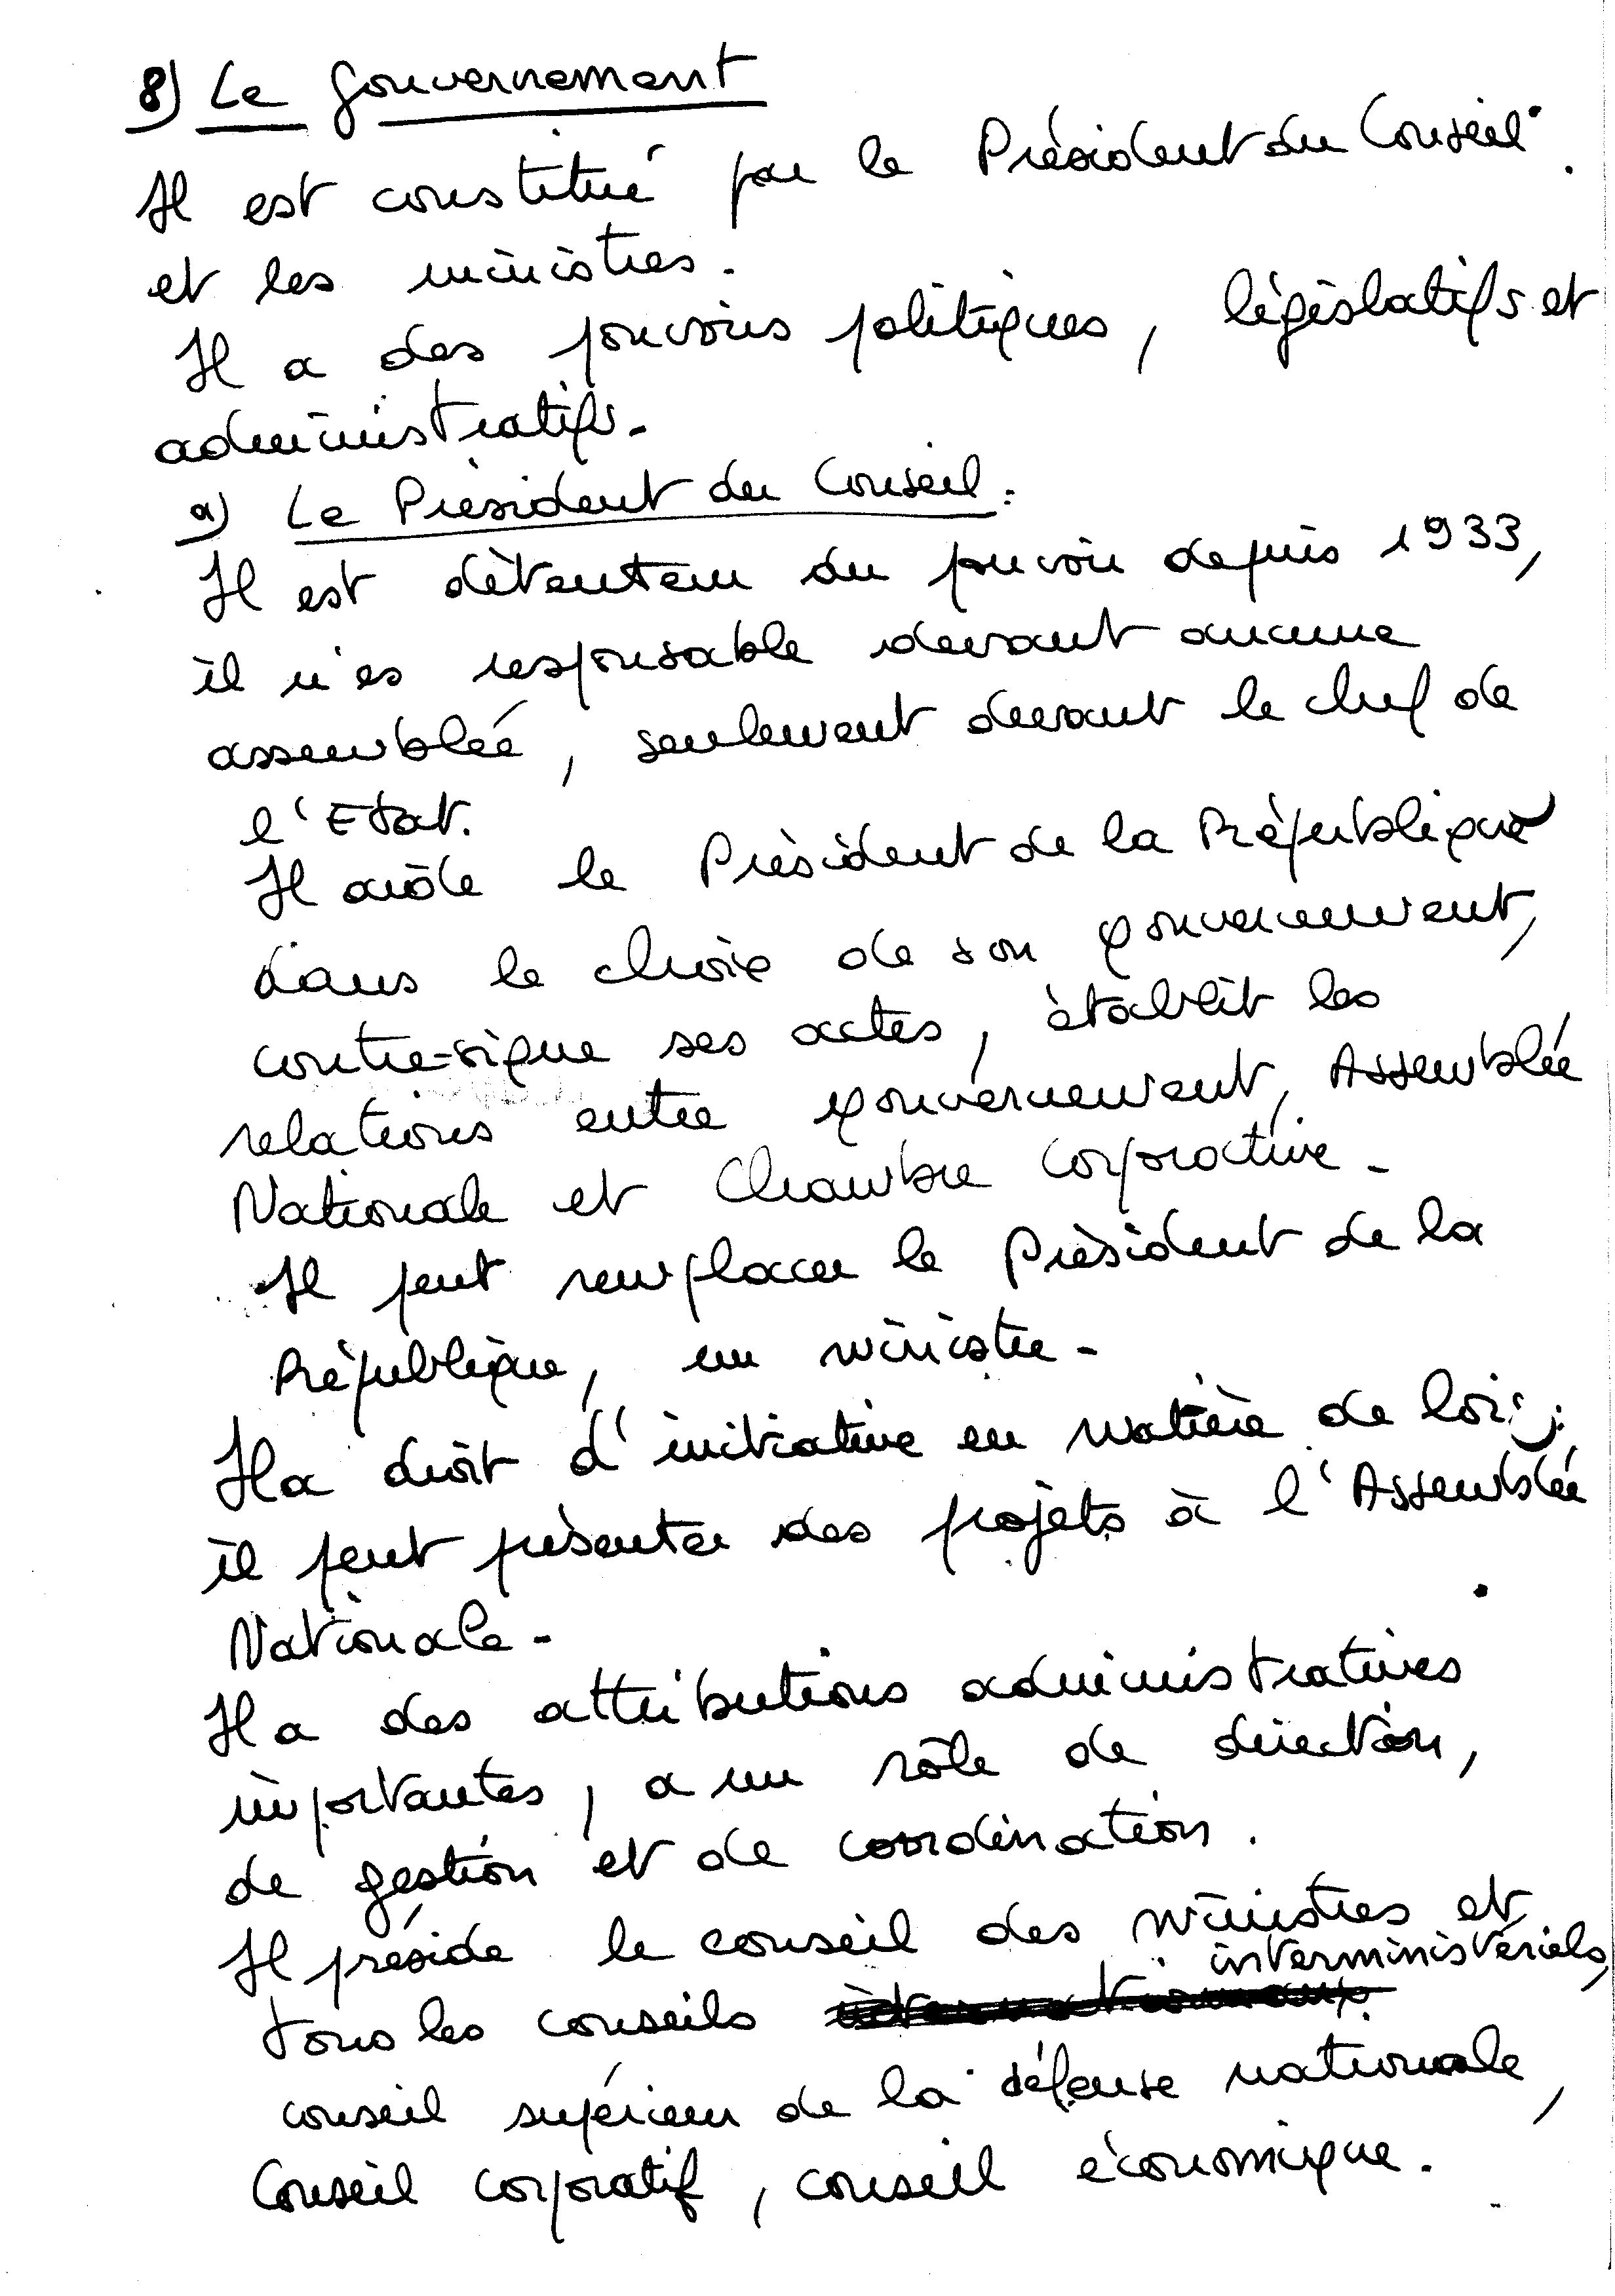 8) Le gouvernement
Il est constitué par le Président du Conseil.
et les ministres.
Il a des pouvoirs politiques, législatifs et
administratifs.
a) Le Président du Conseil :
Il est détenteur du pouvoir depuis 1933,
il n'es responsable devant aucune
assemblée, seulement devant le chef de
l'Etat.
Il aide le Président de la République
dans le choix de son gouvernement,
contre-signe ses actes, établit les
relations entre gouvernement, Assemblée
Nationale et Chambre Corporative -
Il peut remplacer le Président de la
République, un ministre -
Il a droit d'initiative en matière de loi ;
il peut présenter des projets à l'Assemblée
Nationale -
Il a des attributions administratives
importantes, a un rôle de direction,
de gestion et de coordination.
Il préside le conseil des ministres et
tous les conseils internationaux interministériels,
conseil supérieur de la défense nationale,
Conseil corporatif, conseil économique.